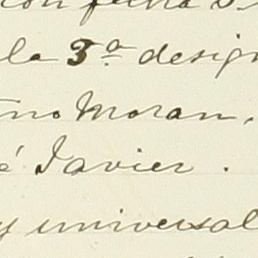 con fecha
la 3ª design
no Moran,
é Javier.
y universal